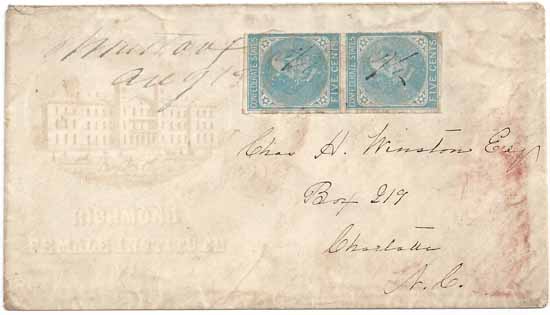 Aug 18
CONFEDERATE STATES
FIVE CENTS
CONFEDERATE STATES
FIVE CENTS
Chas H. Winston Esq
Box 219
Charlotte
N.C.
RICHMOND
FEMALE INSTITUTE